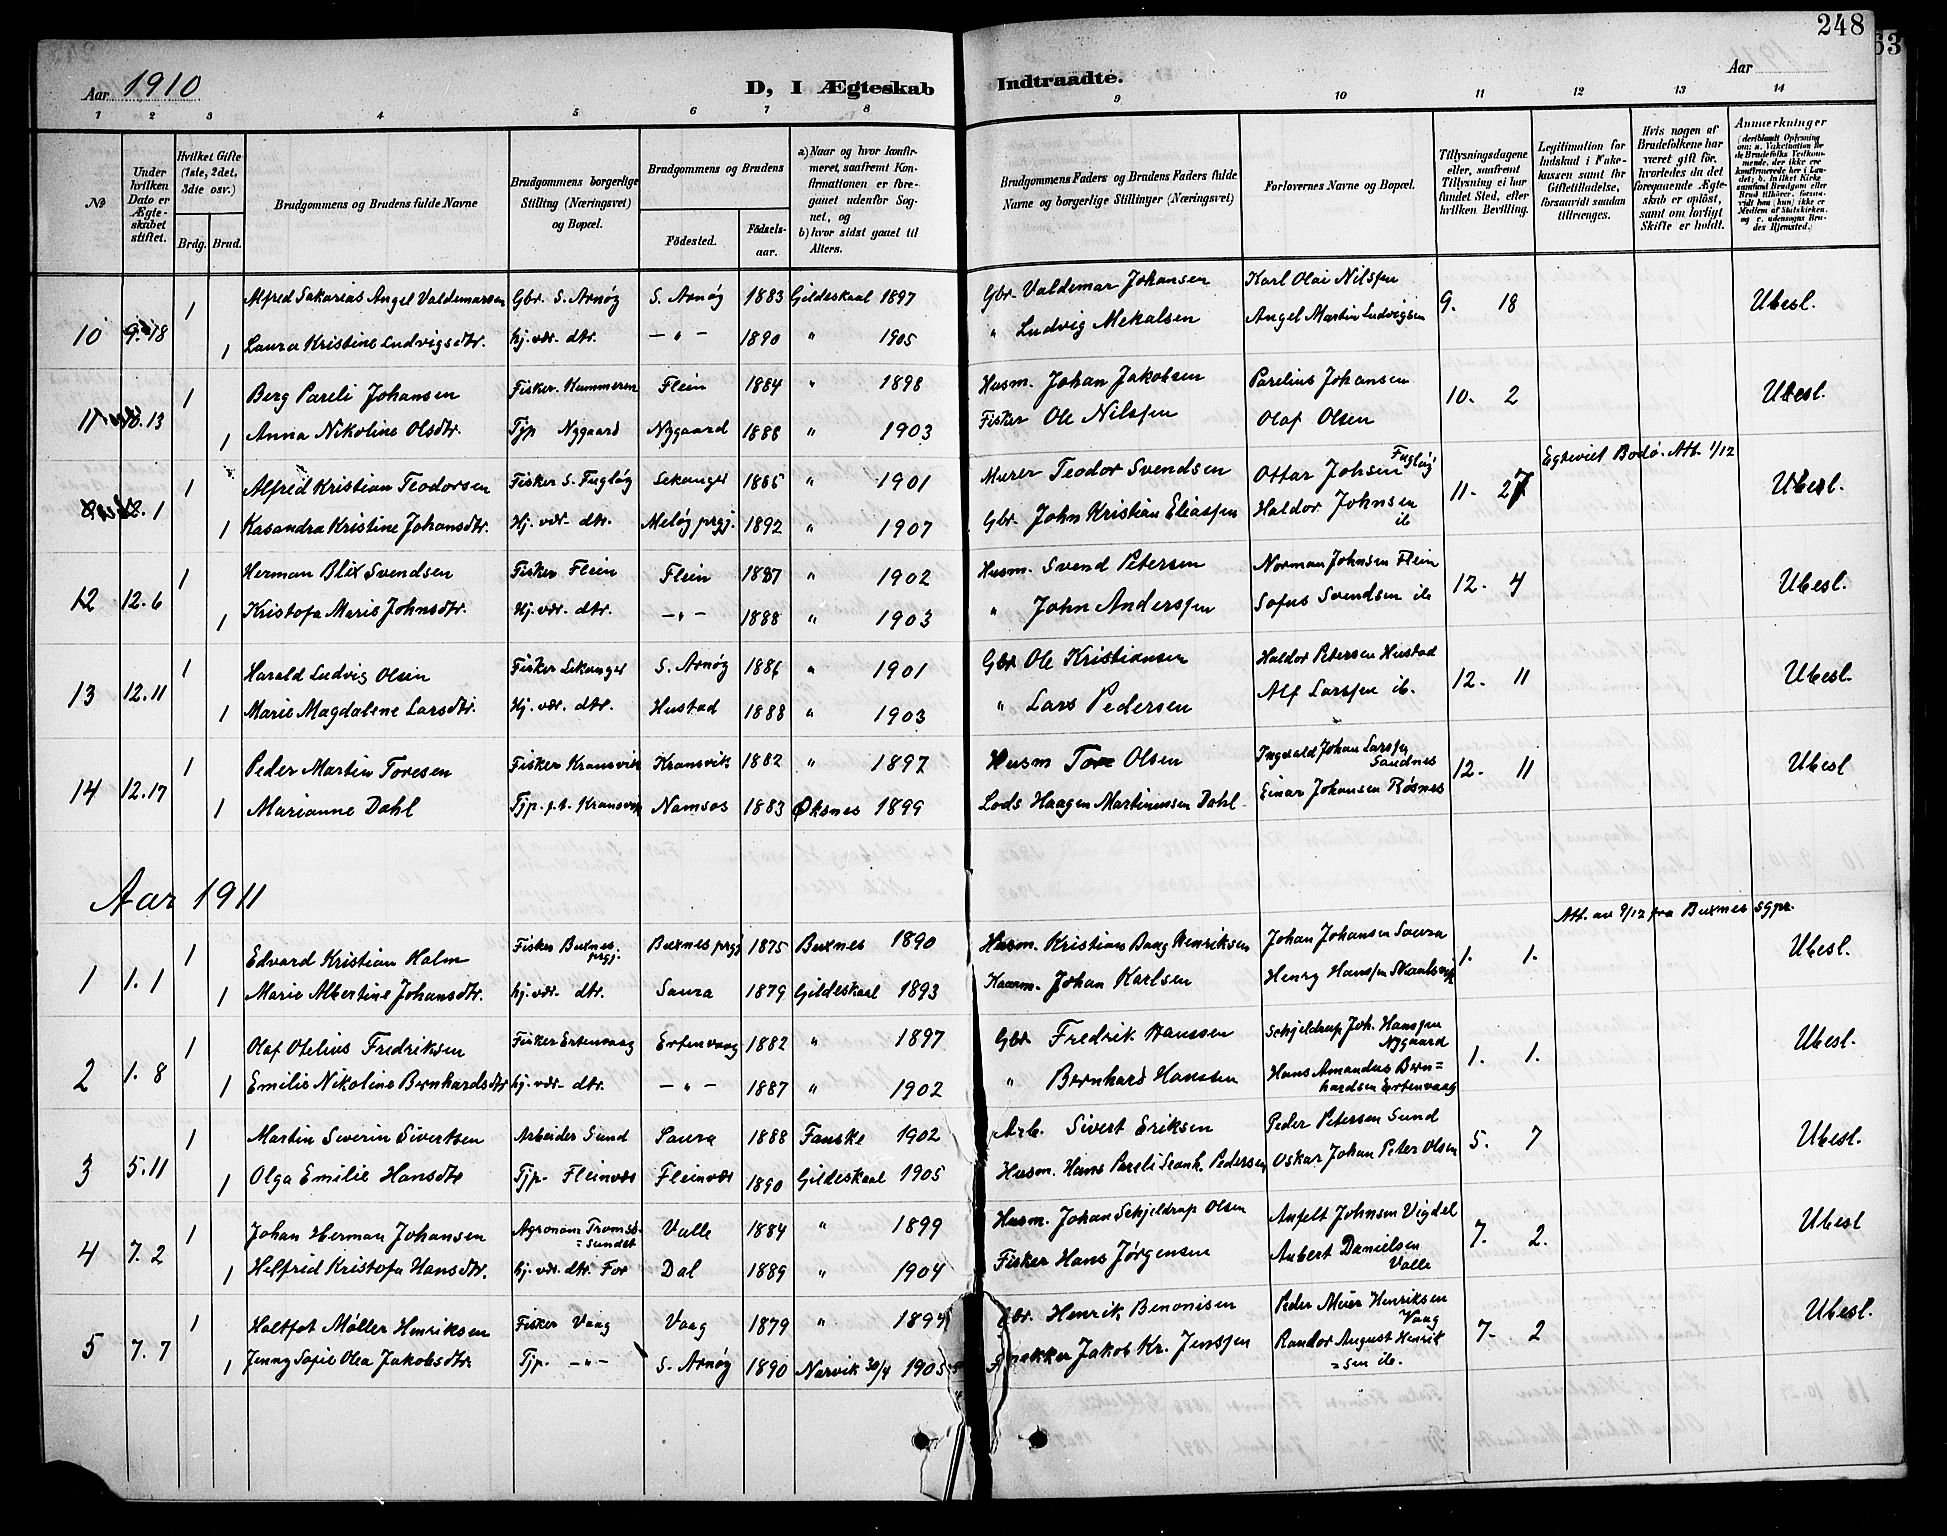 248
63
Aar 1910
D, I Ægteskab Indtraadte.
Aar
1 2 3 4 5 6 7 8 9 10 11 12 13 14
No
Under hvilken Dato er Ægteskabet stiftet.
Hvilket Gifte (1ste, 2det, 3die osv.)
Brdg. Brud.
Brudgommens og Brudens fulde Navne
Brudgommens borgerlige Stilling (Næringsvei) og Bopæl.
Brudgommens og Brudens
Födested. Födselsaar.
a) Naar og hvor konfirmeret, saafremt Konfirmationen er foregaaet udenfor Sognet, og
b) hvor sidst gaaet til Alters.
Brudgommens Faders og Brudens Faders fulde Navne og borgerlige Stillinger (Næringsvei)
Forlovernes Navne og Bopæl.
Tillysningsdagene eller, saafremt Tillysning ei har fundet Sted, efter hvilken Bevilling.
Legitimation for Indskud i Enkekassen samt for Giftetilladelse, forsaavidt saadan tiltrænges.
Hvis nogen af Brudefolkene har været gift för, hvorledes da det foregaaende Ægteskab er oplöst, samt om lovligt Skifte er holdt.
Anmærkninger
10 9.18 1 Alfred Sakarias Angel Valdemarsen Gbr. S. Arnøy S. Arnøy 1883 Gildeskaal 1897 Gbr. Valdemar Johansen Karl Olai Nilssen 9. 18 Ubesl.
1 Laura Kristine Ludvigsdtr. hj. vær. dtr. — " — 1890 " 1905 " Ludvig Mekalsen Angel Martin Ludvigsen
11 13 1 Berg Pareli Johansen Fisker Kummeren Flein 1884 " 1898 Husm. Johan Jakobsen Parelius Johansen 10. 2 Ubesl.
1 Anna Nikoline Olsdtr. Tjp Nygaard Nygaard 1888 " 1903 Fisker Ole Nilssen Olaf Olsen
Egteviet Bodø. Att. 1/12
12. 1 1 Alfred Kristian Teodorsen Fisker S. Fugløy Sekanger 1885 " 1901 Murer Teodor Svendsen Ottar Johsen Fugløy 11. 27 Ubesl.
1 Kasandra Kristine Johansdtr. Hj. vær. dtr. Meløy prgj. 1892 " 1907 Gbr. John Kristian Eliassen Haldor Johnsen ib
12 12.6 1 Herman Blix Svendsen Fisker Flein Flein 1887 " 1902 Husm. Svend Petersen Norman Johnsen Flein 12. 4 Ubesl.
1 Kristofa Marie Johnsdtr. Hj. vær. dtr. — " — 1888 " 1903 " John Anderssen Sofus Svendsen ib
13 12.11 1 Harald Ludvig Olsen Fisker Sekanger S. Arnøy 1886 " 1901 Gbr Ole Kristiansen Haldor Petersen Hustad 12. 11 Ubesl.
1 Marie Magdalene Larsdtr. Hj. vær. dtr. Hustad 1888 " 1903 " Lars Pedersen Alf Larssen ib.
14 12.17 1 Peder Martin Toresen Fisker Kransvik Kransvik 1882 " 1897 Husm Tore Olsen Ingvald Johan Larssen Sandnes 12. 11 Ubesl
1 Marianne Dahl Tjp. p.t. Kransvik Namsos 1883 Øksnes 1899 Lods Haagen Martinussen Dahl Einar Johansen Røsnes
Aar 1911
Att. av 9/12 fra Buxnes sgpr.
1 1.1 1 Edvard Kristian Holm Fisker Buxnes prgj. Buxnes prgj 1875 Buxnes 1890 Husm. Kristian Baag Henriksen Johan Johansen Saura 1. 1. Ubesl.
1 Marie Albertine Johansdtr. hj. vær. dtr. Saura 1879 Gildeskaal 1893 Johan Karlsen Henry Hanssen Skaalsvik
2 1.8 1 Olaf Otelius Fredriksen Fisker Ertenvaag Ertenvaag 1882 " 1897 Gbr. Fredrik Hanssen Schjeldrup Joh. Hanssen Nygaard 1. 1. Ubesl.
1 Emilie Nikoline Bernhardsdtr hj. vær. dtr. — " — 1887 " 1902 " Bernhard Hanssen Hans Amandus Bernhardsen Ertenvaag
3 5.11 1 Martin Severin Sivertsen Arbeider Sund Saura 1888 Fauske 1902 Arb. Sivert Eriksen Peder Petersen Sund 5. 7 Ubesl.
1 Olga Emilie Hansdtr Tjp. Fleinvær Fleinvær 1890 Gildeskaal 1905 Husm. Hans Pareli Pedersen Oskar Johan Peter Olsen
4 7.2 1 Johan Herman Johansen Agronom Tromsösundet Valle 1884 " 1899 Husm. Johan Schjeldrup Olsen Anfelt Johnsen Vigdel 7. 2. Ubesl
1 Helfrid Kristofa Hansdtr. hj. vær. dtr. For Dal 1889 " 1904 Fisker Hans Jørgensen Aubert Danielsen Valle
5 7.7 1 Haltfot Møller Henriksen Fisker Vaag Vaag 1879 " Gbr. Henrik Benonisen Peder Meier Henriksen Vaag 7. 2 Ubesl.
1 Jenny Sofie Olea Jakobsdtr. Tjp. — " — S. Arnøy 1890 Narvik 30/4 1905 Snekker Jakob Kr. Jenssen Randor August Henriksen ib.